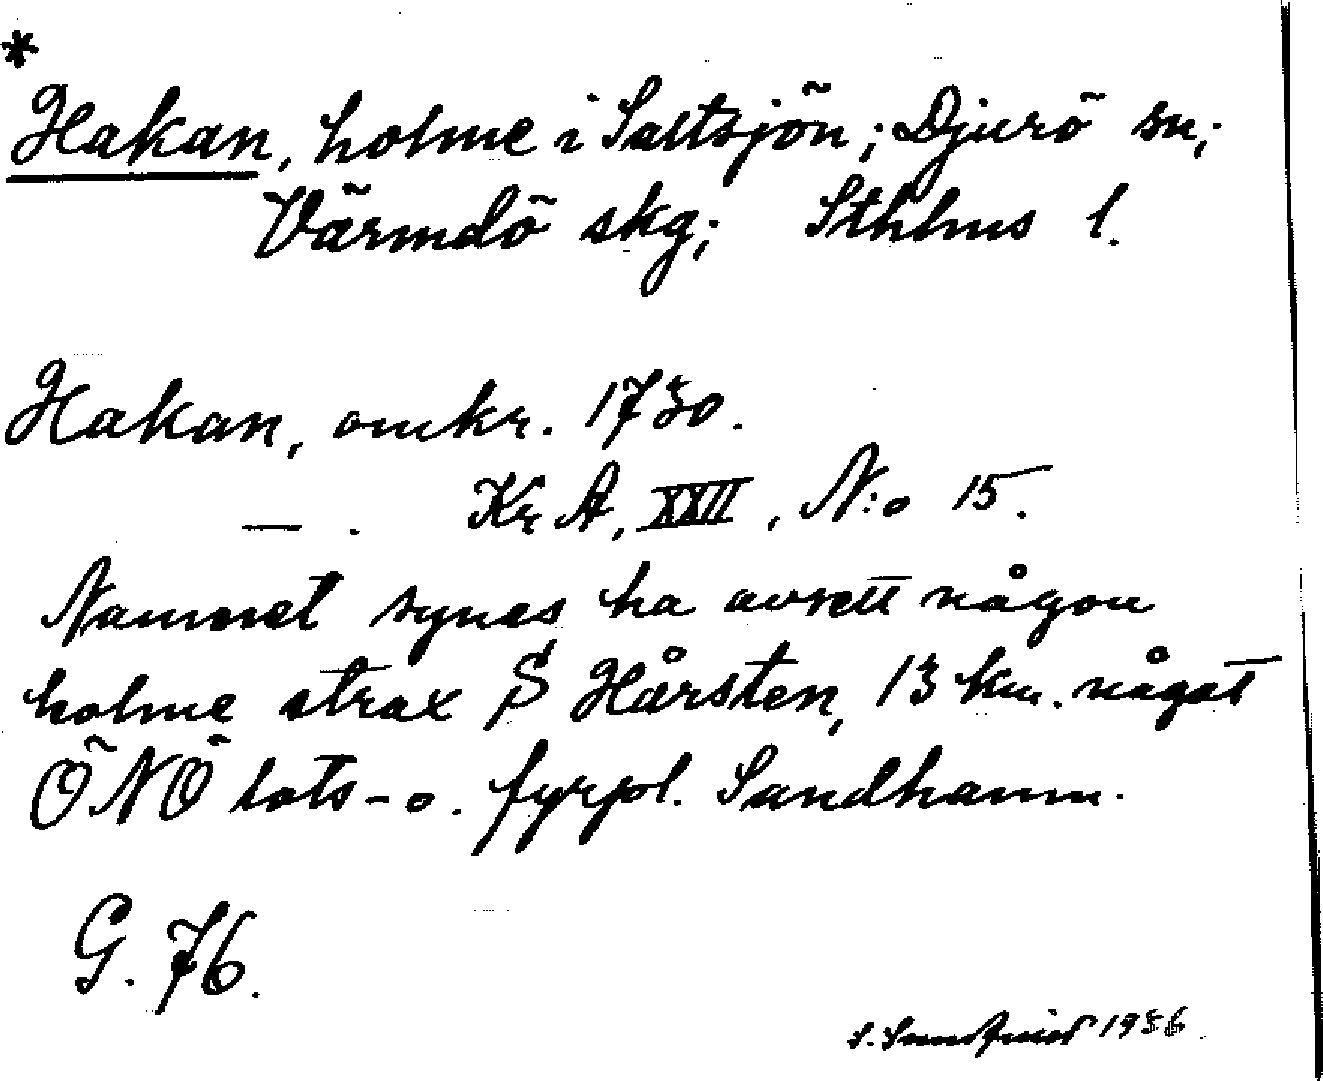 *
Hakan, holme i Saltsjön; Djurö sn;
Värmdö skg; Sthlms l.
Hakan, omkr. 1730.
— . Kr A, XXII, N:o 15.
Namnet synes ha avsett någon
holme strax S Hårsten, 13 km. något
ÖNÖ lots- o. fyrpl. Sandhamn.
G. 76.
S. 1936